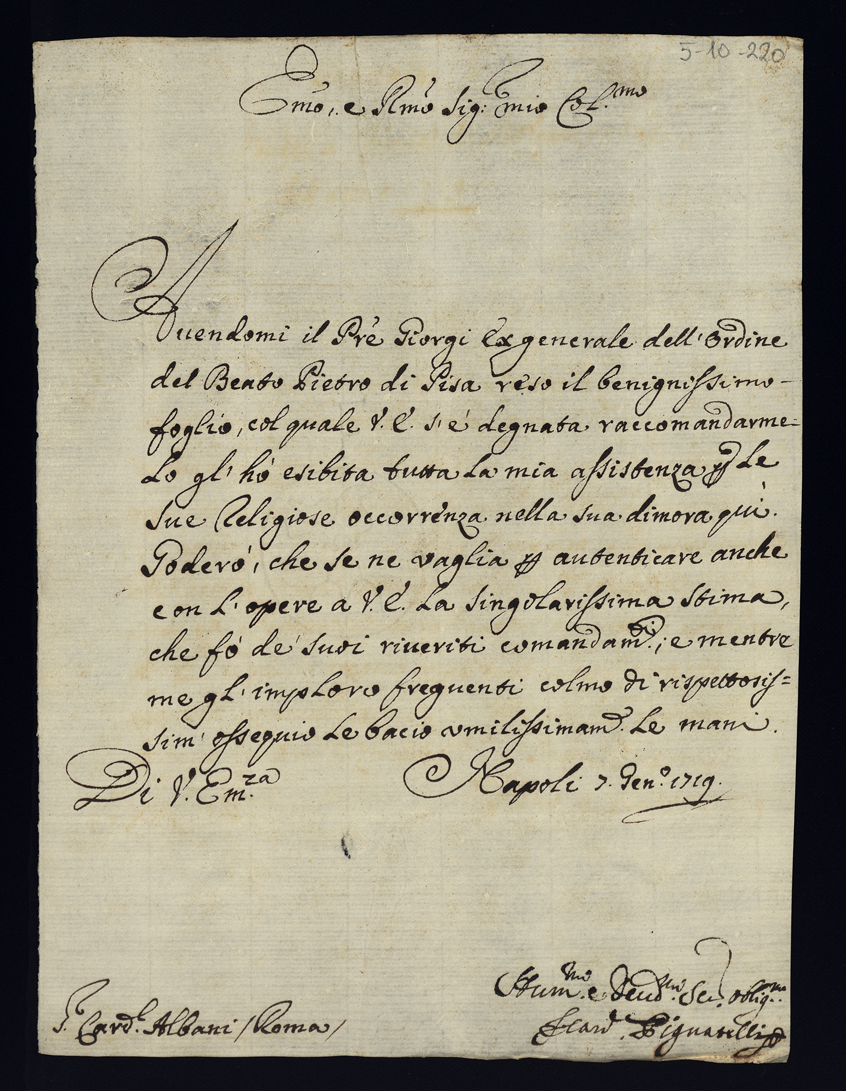 5-10-220
Em̃o, e Rm̃o Sig: mio Col.mo
Auendomi il Prẽ Giorgi Ex generale dell'Ordine
del Beato Pietro di Pisa reso il benignissimo
foglio, col quale V. E. s'è degnata raccomandarme-
lo gl'hò esibita tutta la mia assistenza ꝑ le
sue Religiose occorrenza nella sua dimora quì.
Goderò, che se ne vaglia ꝑ autenticare anche
con l'opere a V. E. la singolarissima stima,
che fò de' suoi riueriti comandam.ti; e mentre
me gl'imploro frequenti colmo di rispettosis=
sim' ossequio le bacio vmilissimam.e le mani.
Di V. Em.za Napoli 7. Gen.o 1719.
Hum.mo e Deud.mo Se.r oblig.mo
S. Card.l Albani /Roma/ F Card. Pignatelli